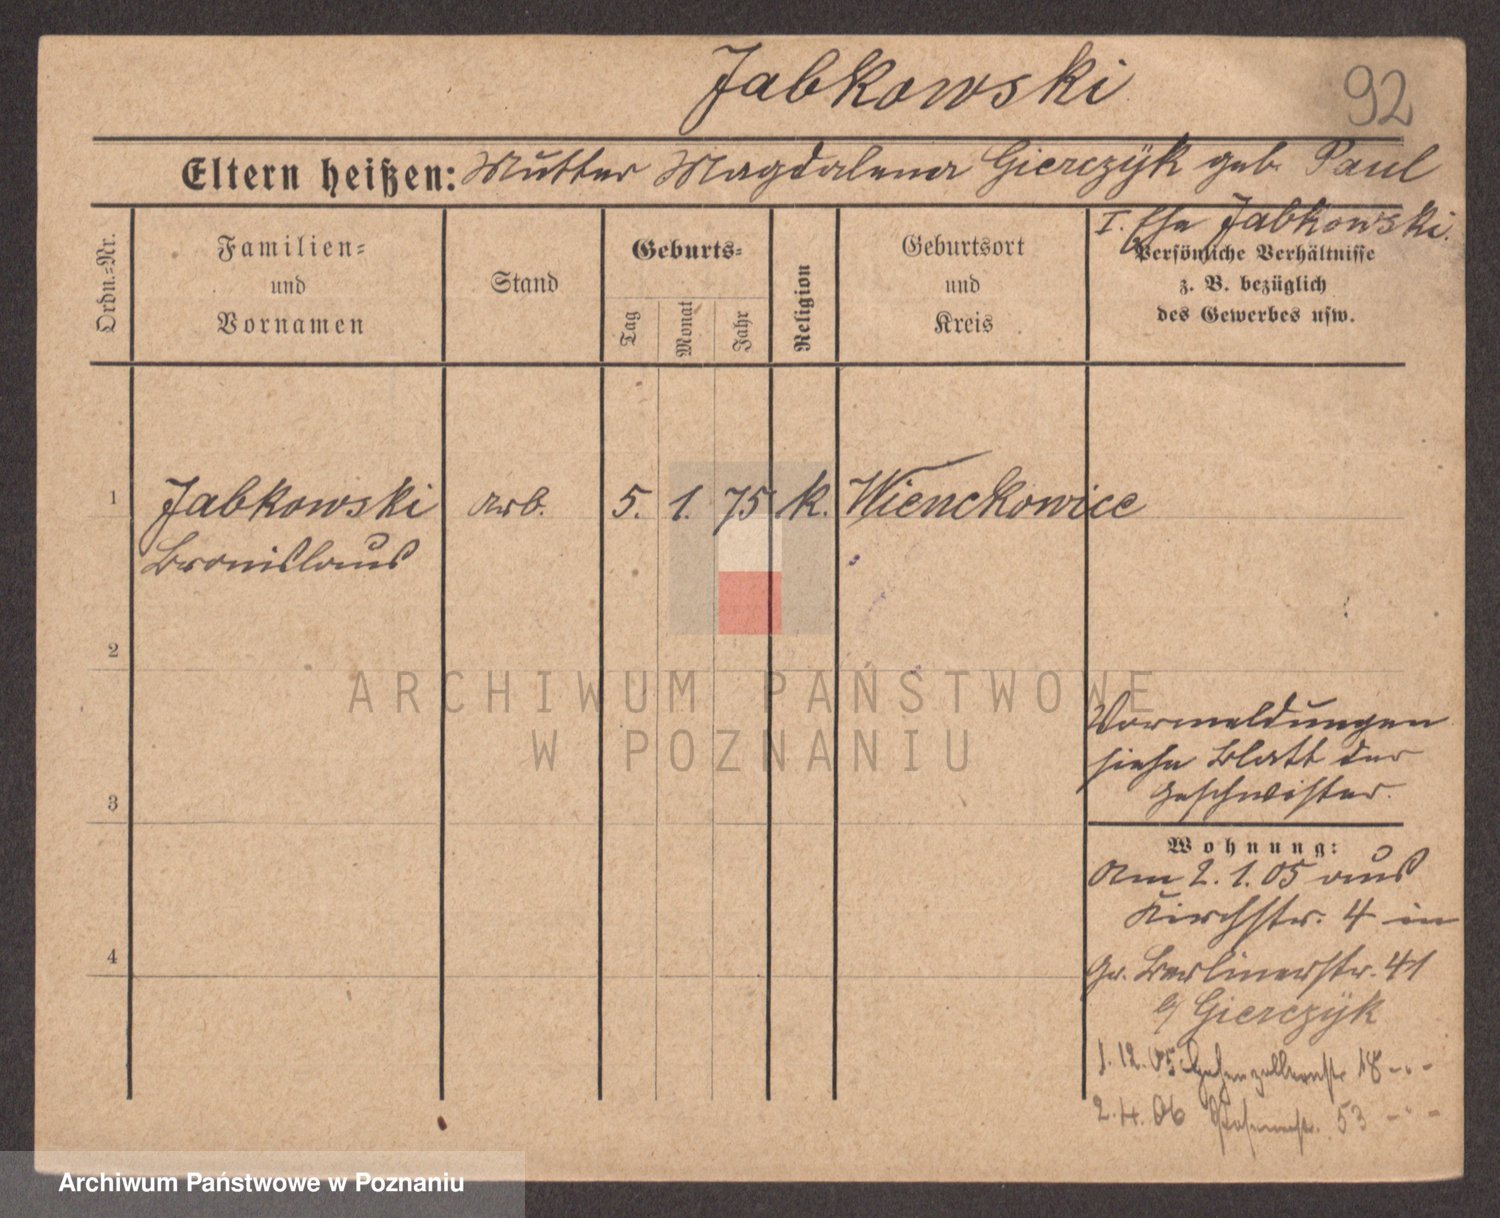 Jabkowski
92
Eltern heißen: Mutter Magdalena Gierczÿk geb. Paul
I. Ehe Jabkowski.
Ordn.-Nr.
Familien-
und
Vornamen
Stand
Geburts-
Tag
Monat
Jahr
Religion
Geburtsort
und
Kreis
Persönliche Verhältnisse
z. B. bezüglich
des Gewerbes usw.
1 Jabkowski Arb. 5. 1. 75 k. Wienckowice
Bronislaus
2
ARCHIWUM PAŃSTWOWE
W POZNANIU
Vormeldungen
siehe Blatt der
Geschwister.
3
Wohnung:
Am 2. 1. 05 aus
Kirchstr. 4 in
Gr. Berlinerstr. 41
4
b/ Gierczÿk
1. 12. 05 Hohenzollernstr. 18 - " -
2. 4. 06 Posenerstr. 53 - " -
Archiwum Państwowe w Poznaniu